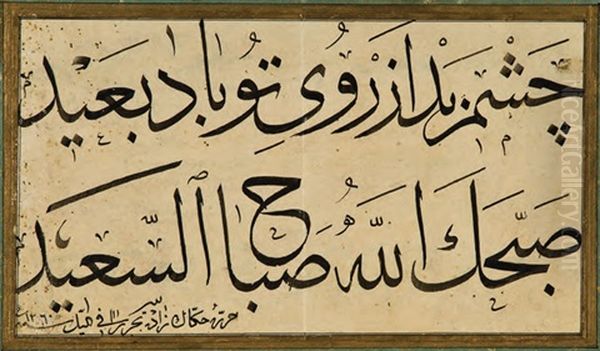 چشم بد از روی تو باد بعید
صبحك الله صباح السعيد
حرره حكاك زاده